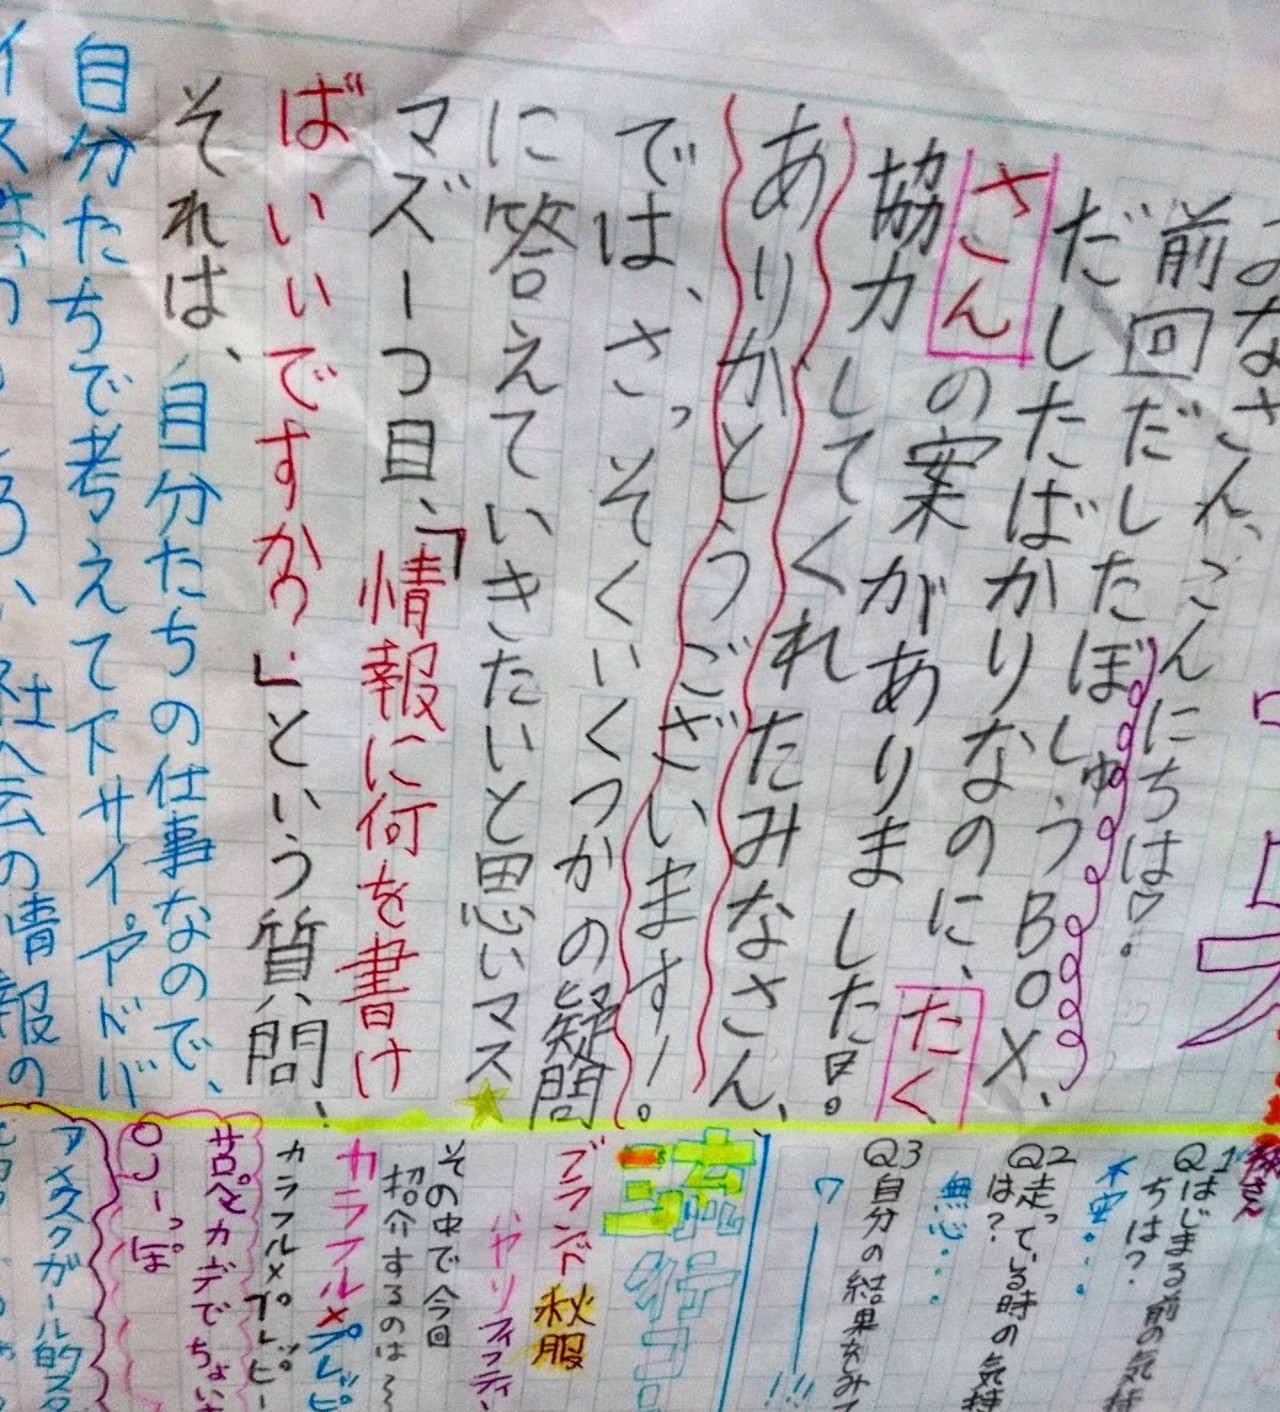 みなさん、こんにちは♡。
前回だしたぼしゅうBOX、
だしたばかりなのに、たく
さんの案がありました日。
協力してくれたみなさん、
ありがとうございます!。
では、さっそくいくつかの疑問
に答えていきたいと思いマス
マズ一つ目、「情報に何を書け
ばいいですか?」という質問、
それは、自分たちの仕事なので、
自分たちで考えて下サイ。アドバ
イスは、
社会の情報の
Q1はじまる前の気持
ちは?
不安。・・
Q2走っている時の気持
は?
無心・・・
Q3自分の結果をみて
ワ――!!!
流行コ
ブランド秋服
その中で今回
招介するのは～
カラフル×プレッピ
カラフル×プレッピー
サロペカデでちょい
OJーっぽ